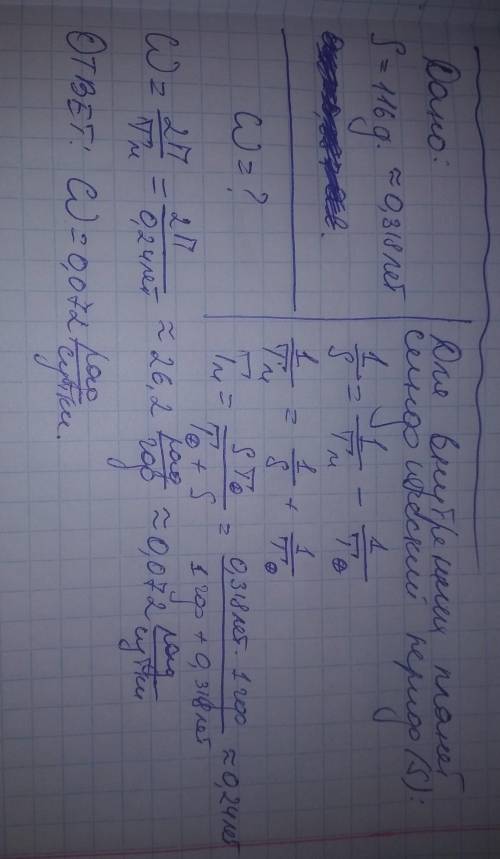 Дано:
S = 116 д. ≈ 0,318 лет
W = ?
Для внутренних планет
синодический период (S):
1/S = 1/Tм − 1/T⊕
1/Tм = 1/S + 1/T⊕
Tм = ST⊕/(T⊕ + S) = (0,318 лет · 1 год)/(1 год + 0,318 лет) ≈ 0,24 лет
W = 2π/Tм = 2π/0,24 лет ≈ 26,2 рад/год ≈ 0,072 рад/сутки
ОТВЕТ: W = 0,072 рад/сутки.